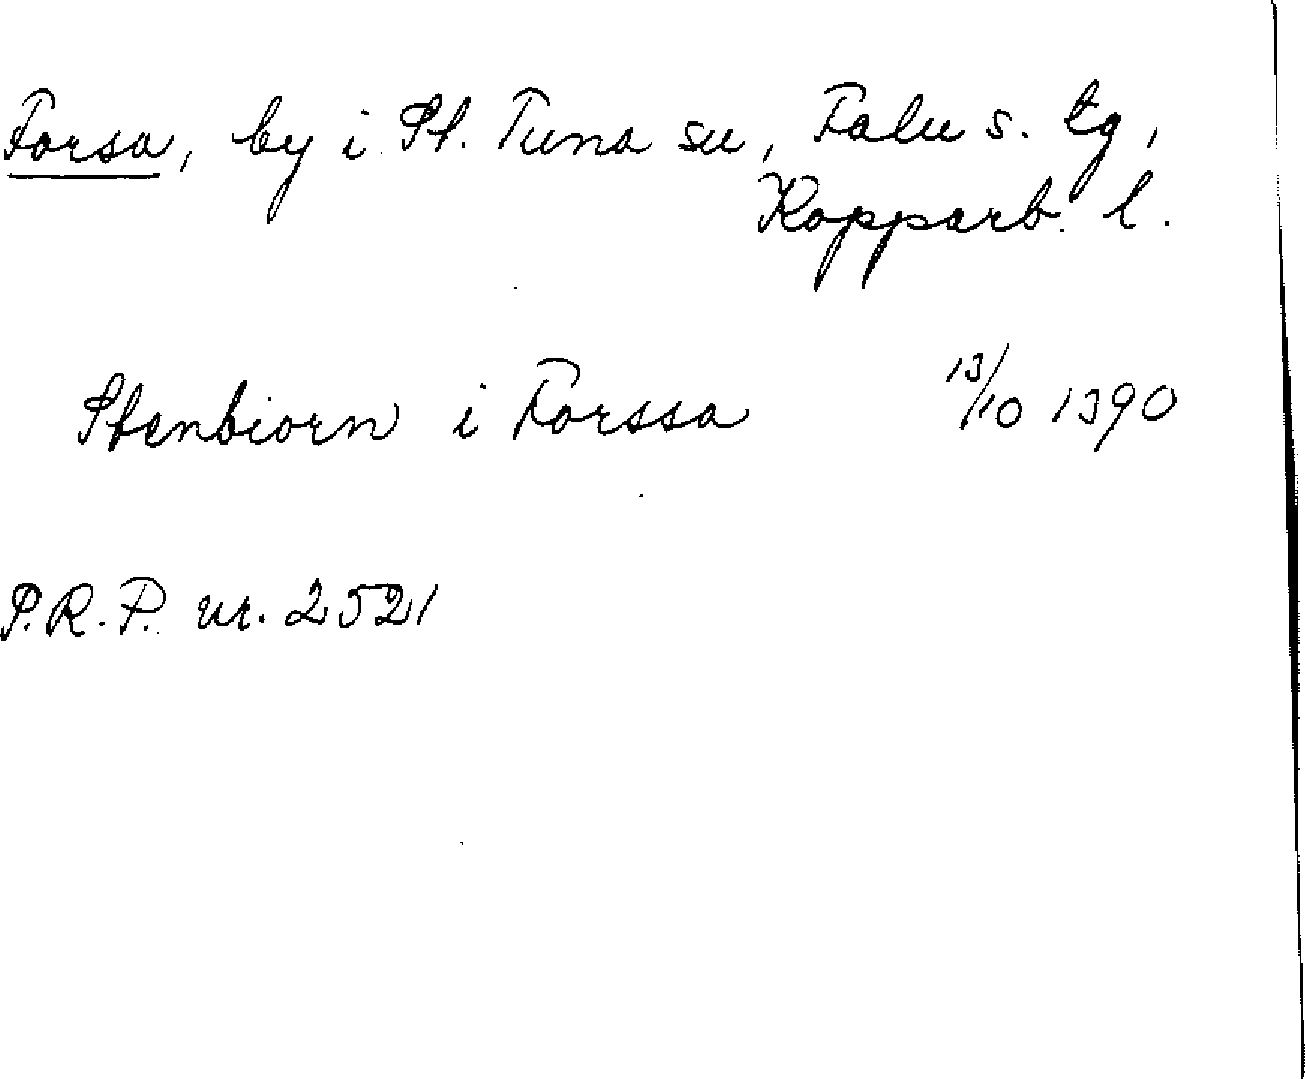 Forsa, by i St. Tuna sn, Falu s. tg,
Kopparb. l.
Stenbiorn i Forssa 13/10 1390
P.R.P. nr. 2521